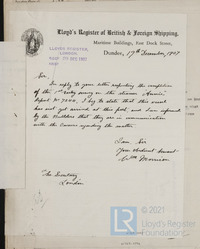 Lloyd's Register of British & Foreign Shipping,
Maritime Buildings, East Dock Street,
Dundee, 17th December, 1907
LLOYD'S REGISTER,
LONDON.
Sir,
In reply to your letter respecting the completion
of the 1st entry survey on the steamer
Report No 7200, I beg to state that this vessel
has not yet arrived at this port and am informed
by the Builders that they are in communication
with the Owners regarding the matter.
I am Sir
Your obedient Servant
Wm Morrison
The Secretary
London
© 2021
Lloyd's Register
Foundation